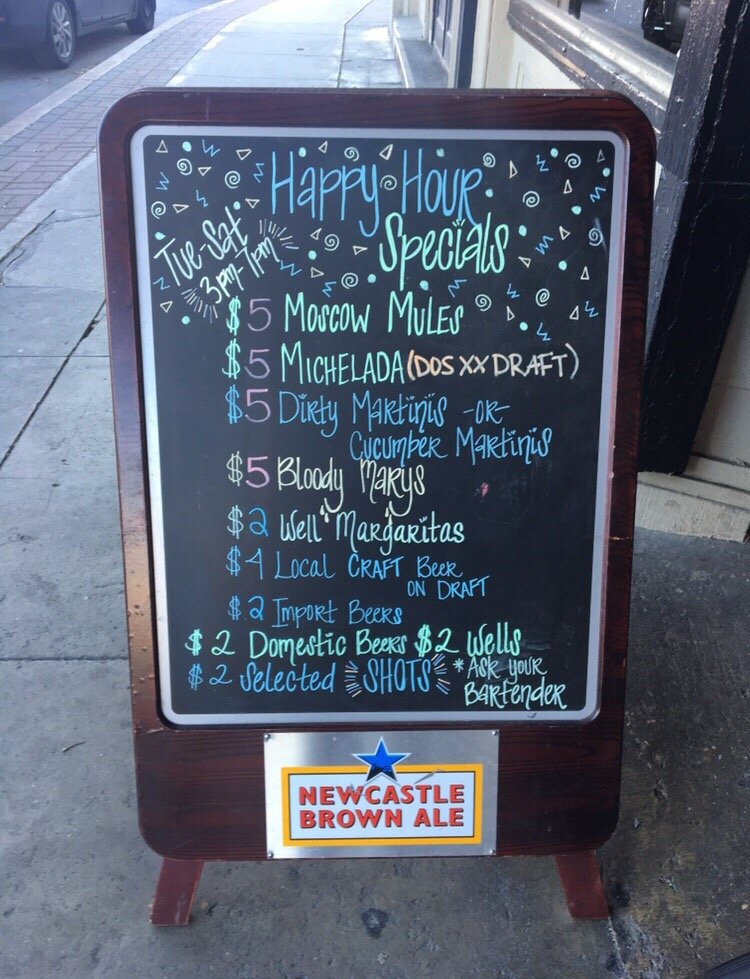 Happy Hour
Specials
Tue-Sat
3pm-7pm
$5 Moscow Mules
$5 Michelada (DOS XX DRAFT)
$5 Dirty Martinis -or-
Cucumber Martinis
$5 Bloody Marys
$2 Well Margaritas
$4 Local CRAFT Beer
ON DRAFT
$2 Import Beers
$2 Domestic Beers $2 Wells
$2 Selected SHOTS *Ask your
Bartender
NEWCASTLE
BROWN ALE